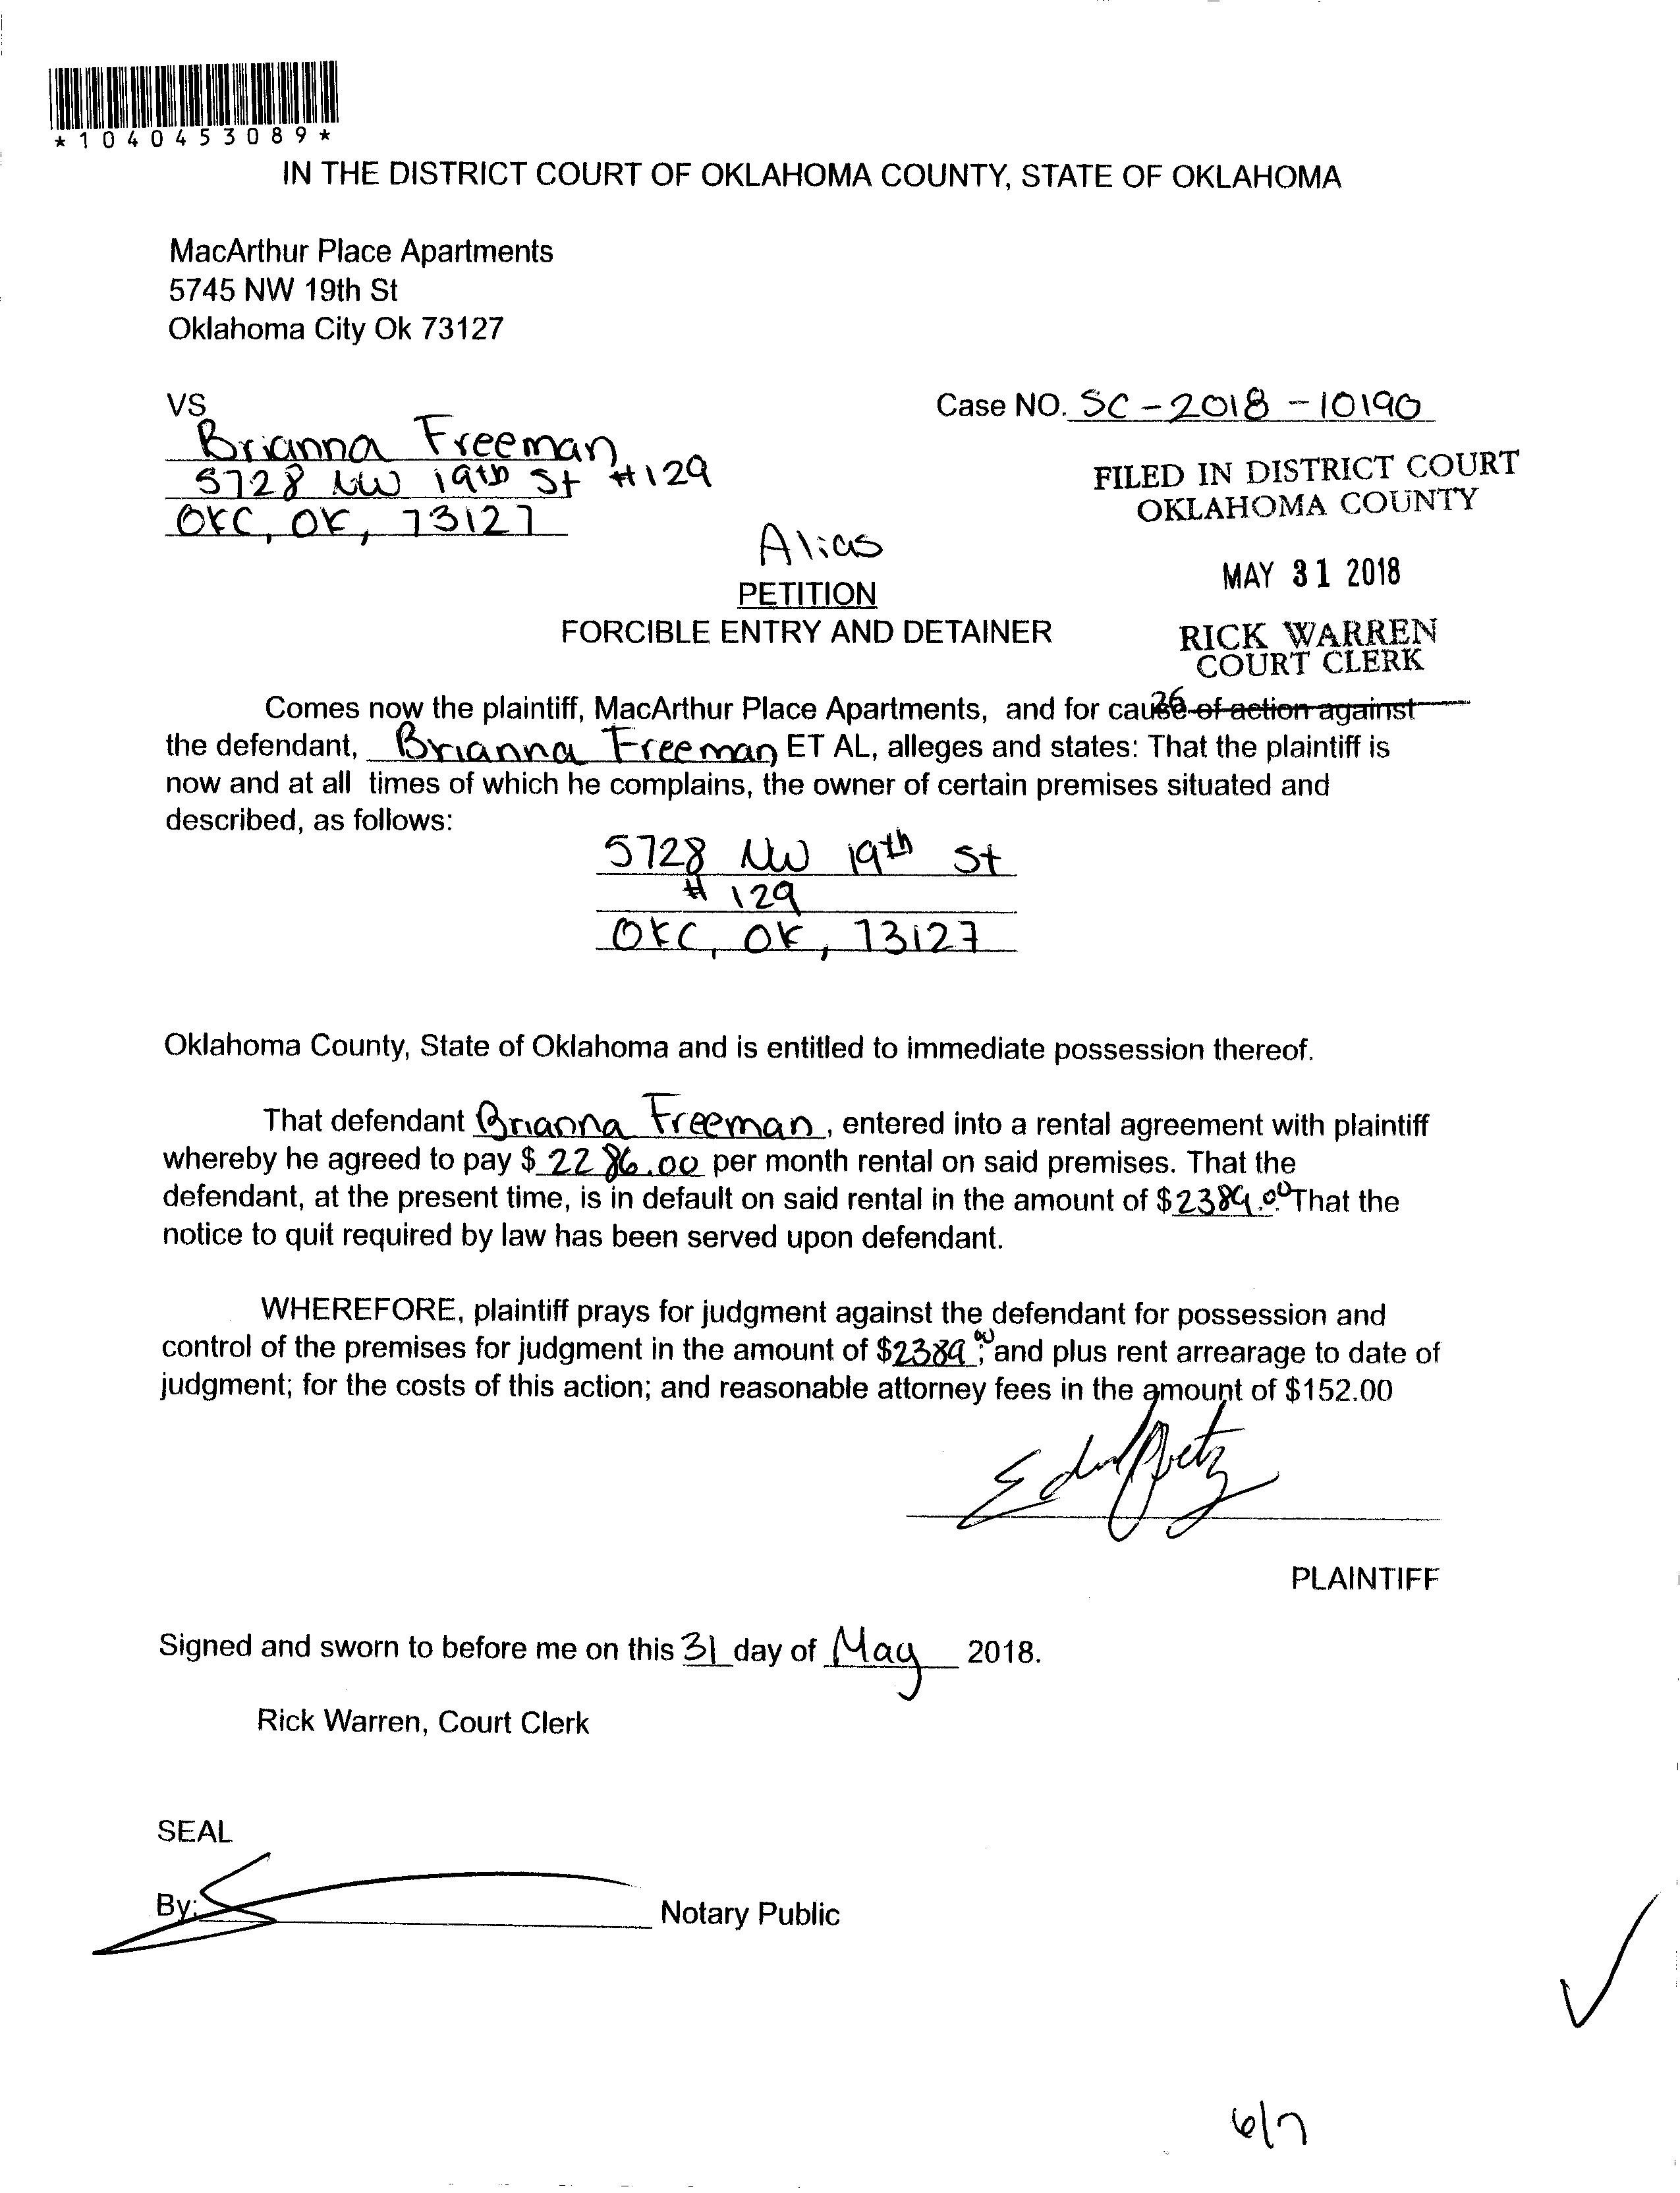 *1040453089*
IN THE DISTRICT COURT OF OKLAHOMA COUNTY, STATE OF OKLAHOMA
MacArthur Place Apartments
5745 NW 19th St
Oklahoma City Ok 73127
VS
Case NO. SC-2018-10190
Brianna Freeman
5728 NW 19th St #129
OKC, OK, 73127
FILED IN DISTRICT COURT
OKLAHOMA COUNTY
MAY 31 2018
RICK WARREN
COURT CLERK
Alias
PETITION
FORCIBLE ENTRY AND DETAINER
26
Comes now the plaintiff, MacArthur Place Apartments, and for cause of action against
the defendant, Brianna Freeman ET AL, alleges and states: That the plaintiff is
now and at all times of which he complains, the owner of certain premises situated and
described, as follows:
5728 NW 19th St
# 129
OKC, OK, 73127
Oklahoma County, State of Oklahoma and is entitled to immediate possession thereof.
That defendant Brianna Freeman, entered into a rental agreement with plaintiff
whereby he agreed to pay $ 2286.00 per month rental on said premises. That the
defendant, at the present time, is in default on said rental in the amount of $2389.00. That the
notice to quit required by law has been served upon defendant.
WHEREFORE, plaintiff prays for judgment against the defendant for possession and
control of the premises for judgment in the amount of $2389.00; and plus rent arrearage to date of
judgment; for the costs of this action; and reasonable attorney fees in the amount of $152.00
PLAINTIFF
Signed and sworn to before me on this 31 day of May 2018.
Rick Warren, Court Clerk
SEAL
By: Notary Public
6/7